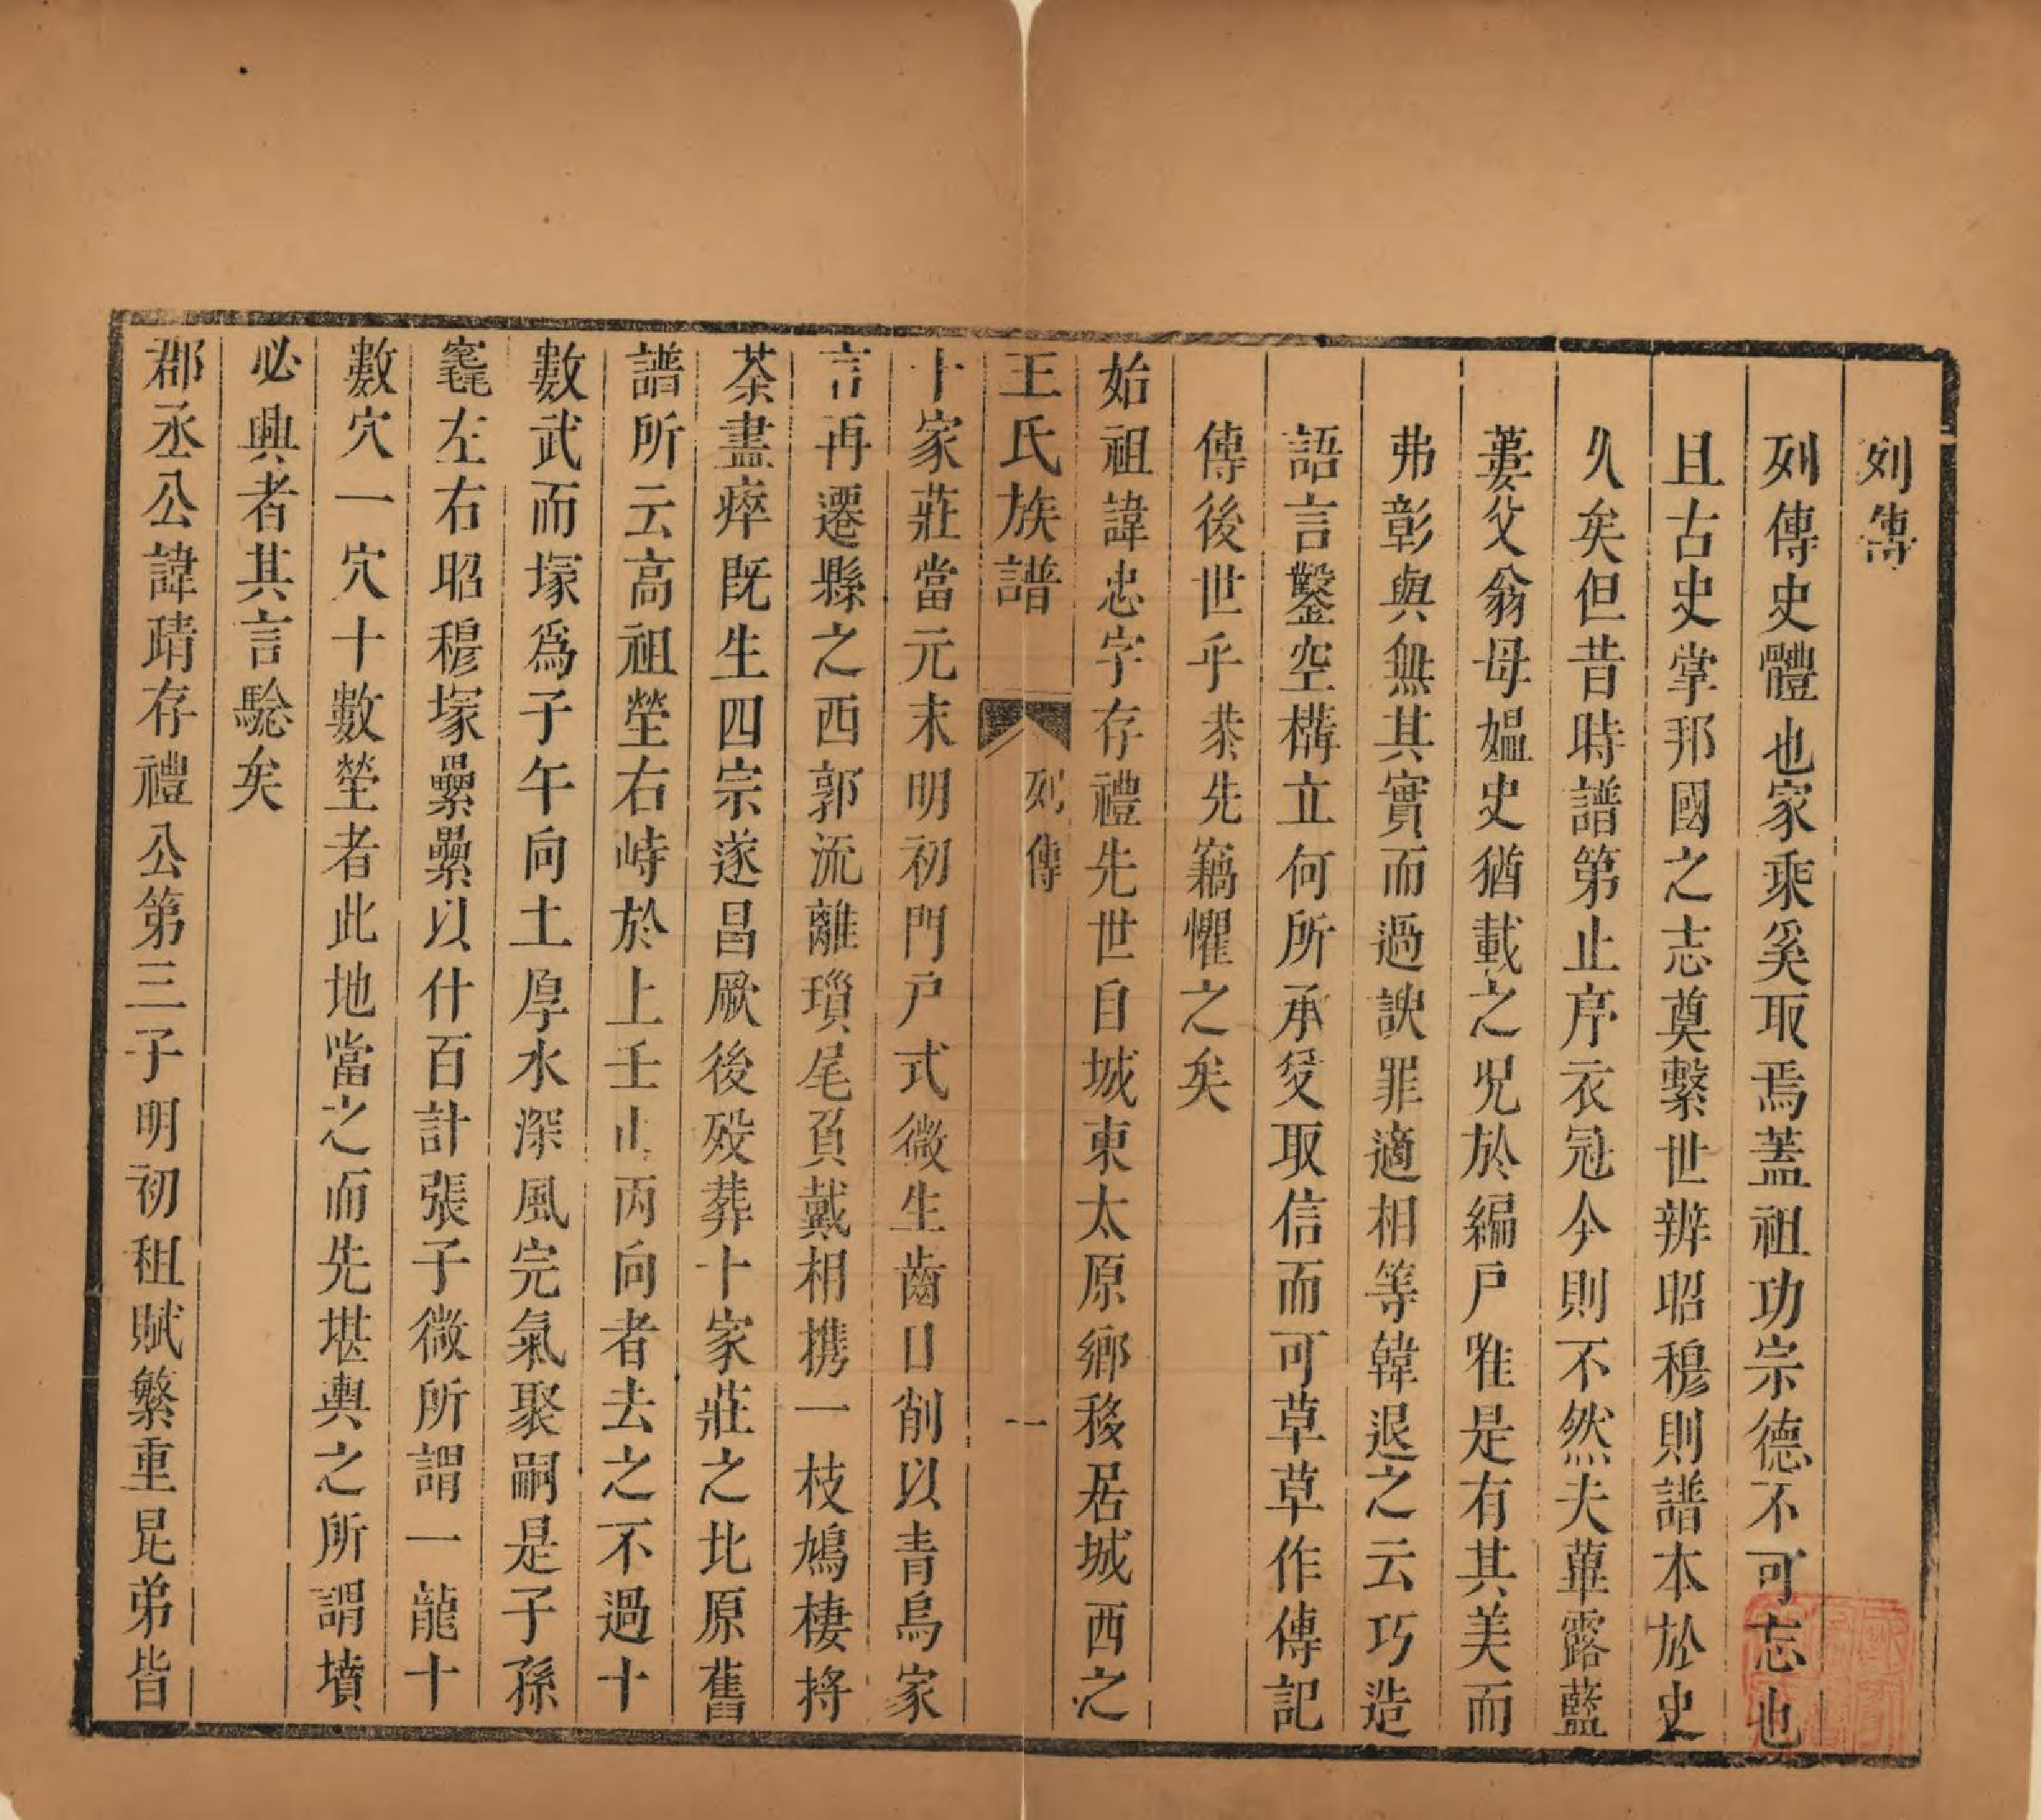 列傳
列傳史體也家乘奚取焉蓋祖功宗德不可忘也
且古史掌邦國之志奠繫世辨昭穆則譜本於史
久矣但昔時譜第止序衣冠今則不然夫蓽露藍
蔞父翁母媼史猶載之況於編戶唯是有其美而
弗彰與無其實而過諛罪適相等韓退之云巧造
語言鑿空構立何所承受取信而可草草作傳記
傳後世乎恭先竊懼之矣
始祖諱忠字存禮先世自城東太原鄉移居城西之
王氏族譜
列傳
一
十家莊當元末明初門戶式微生齒日削以青烏家
言再遷縣之西郭流離瑣尾負戴相携一枝鳩棲捋
荼盡瘁既生四宗遂昌厥後歿葬十家莊之北原舊
譜所云高祖塋右峙於上壬山丙向者去之不過十
數武而塚爲子午向土厚水深風完氣聚嗣是子孫
窀左右昭穆塚纍纍以什百計張子微所謂一龍十
數穴一穴十數塋者此地當之而先堪輿之所謂墳
必興者其言驗矣
郡丞公諱靖存禮公第三子明初租賦繁重昆弟皆